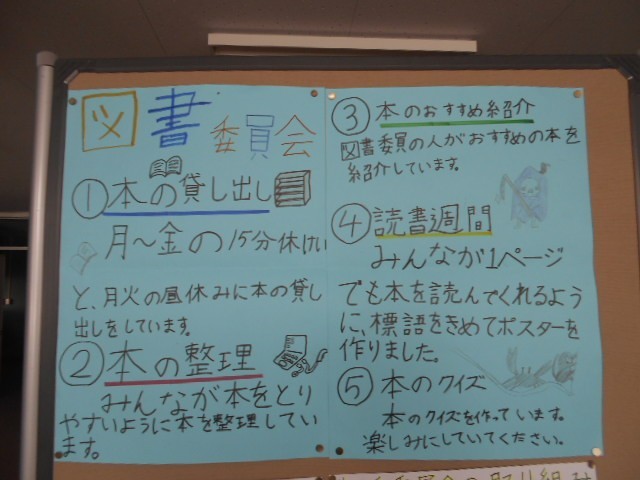 図書委員会
①本の貸し出し
月〜金の15分休けい
と、月火の昼休みに本の貸し
出しをしています。
②本の整理
みんなが本をとり
やすいように本を整理してい
ます。
③本のおすすめ紹介
図書委員の人がおすすめの本を
紹介しています。
④読書週間
みんなが1ページ
でも本を読んでくれるよう
に、標語をきめてポスターを
作りました。
⑤本のクイズ
本のクイズを作っています。
楽しみにしていてください。